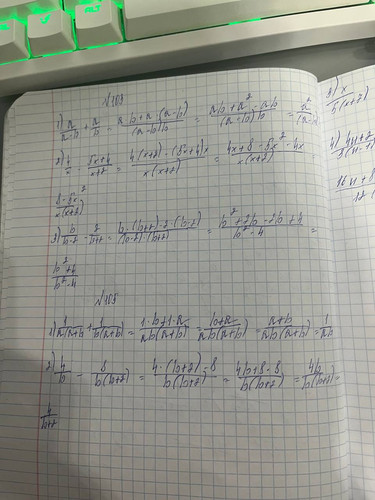 №108
1) a/(a-b) + a/b = (ab+a(a-b))/((a-b)b) = (ab+a²-ab)/((a-b)b) = a²/(a-
2) 4/x - (5x+4)/(x+2) = (4(x+2)-(5x+4)x)/(x(x+2)) = (4x+8-5x²-4x)/(x(x+2))
(8-5x²)/(x(x+2))
3) b/(b-2) - 2/(b+2) = (b·(b+2)-2·(b-2))/((b-2)·(b+2)) = (b²+2b-2b+4)/(b²-4) =
(b²+4)/(b²-4)
№108
1) 1/(a(a+b)) + 1/(b(a+b)) = (1·b+1·a)/(ab(a+b)) = (b+a)/(ab(a+b)) = (a+b)/(ab(a+b)) = 1/(ab)
2) 4/b - 8/(b(b+2)) = (4·(b+2)-8)/(b(b+2)) = (4b+8-8)/(b(b+2)) = 4b/(b(b+2)) =
4/(b+2)
3) x
5(x+7)
4)